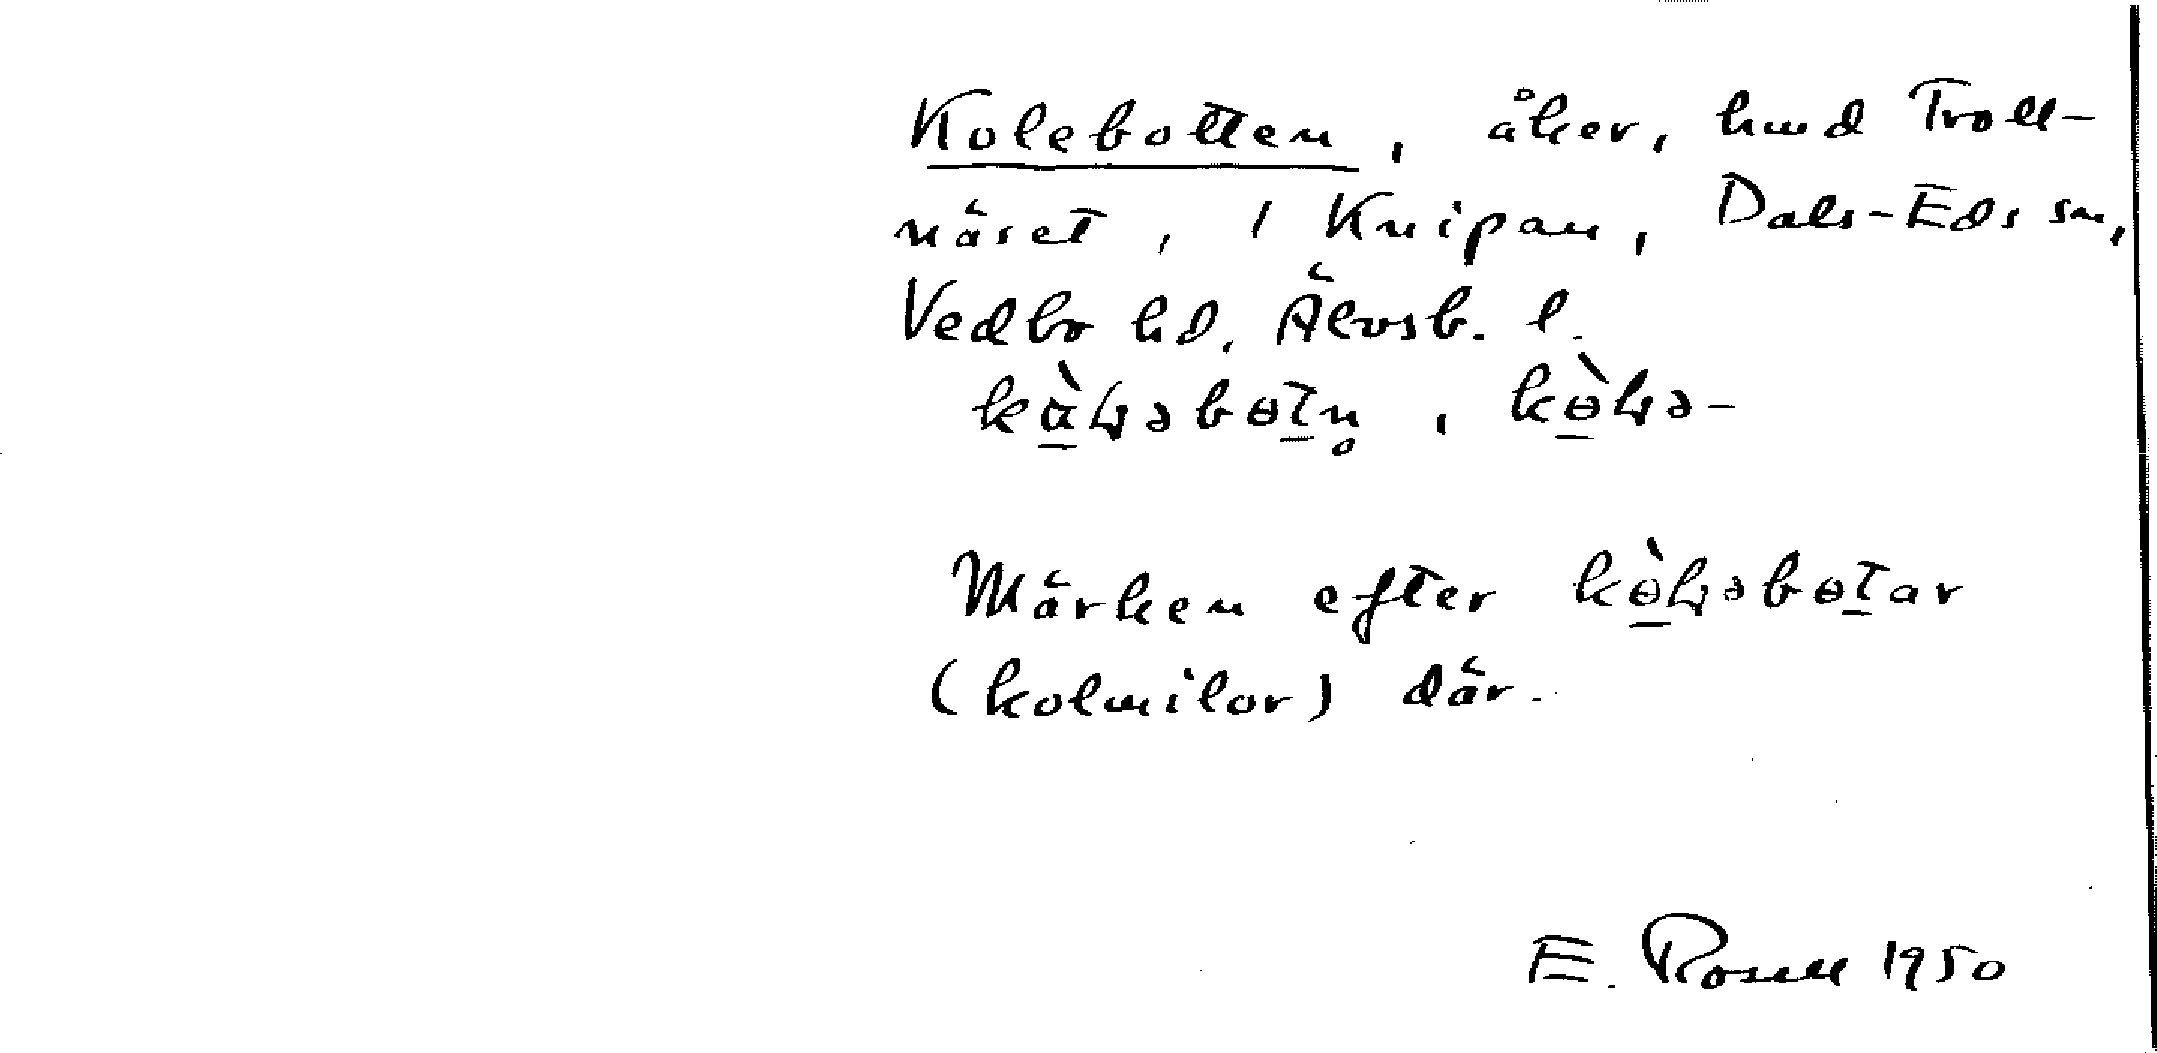 Kolebotten, åker, hmd Troll-
näset, 1 Knipan, Dals-Eds sn,
Vedbo hd, Älvsb. l.
kὰ̱ɽəbɵt̠n̥, kɵ̱̀ɽə-
Märken efter kɵ̱̀ɽəbɵt̠ar
(kolmilor) där.
E. Rosell 1950